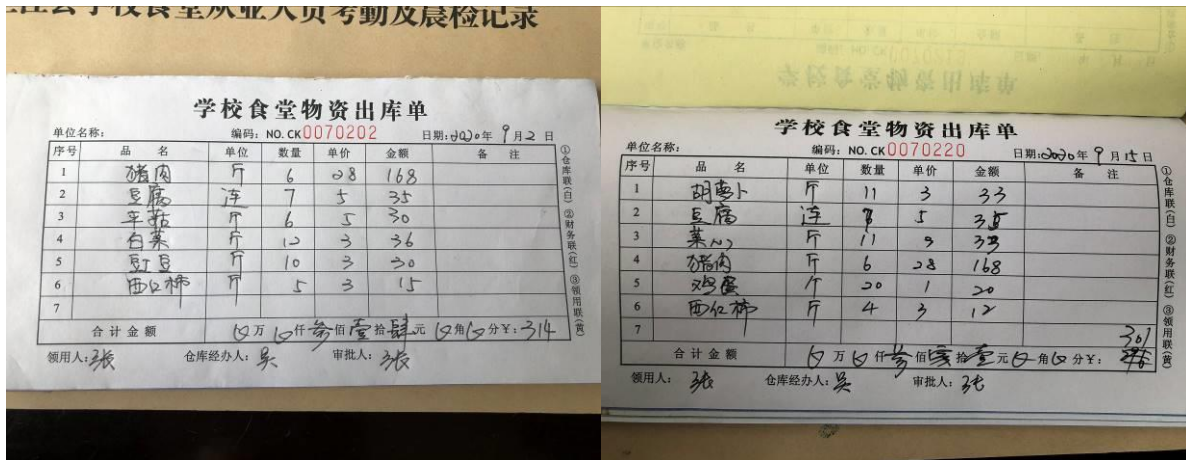 学校食堂从业人员考勤及晨检记录
学校食堂物资出库单
单位名称: 编码: NO. CK0070202 日期:2020年 9月2日
序号 品名 单位 数量 单价 金额 备注
1 猪肉 斤 6 28 168
2 豆腐 连 7 5 35
3 平菇 斤 6 5 30
4 白菜 斤 12 3 36
5 豇豆 斤 10 3 30
6 西红柿 斤 5 3 15
7
合计金额 万 仟叁佰壹拾肆元 角 分¥: 314
领用人:张 仓库经办人: 吴 审批人: 张
①仓库联(白) ②财务联(红) ③领用联(黄)
学校食堂物资出库单
单位名称: 编码: NO. CK0070220 日期:2020年 9月15日
序号 品名 单位 数量 单价 金额 备注
1 胡萝卜 斤 11 3 33
2 豆腐 连 7 5 35
3 菜心 斤 11 3 33
4 猪肉 斤 6 28 168
5 鸡蛋 个 20 1 20
6 西红柿 斤 4 3 12
7
301
合计金额 万 仟叁佰零拾壹元 角 分¥:
领用人: 张 仓库经办人: 吴 审批人: 张
①仓库联(白) ②财务联(红) ③领用联(黄)